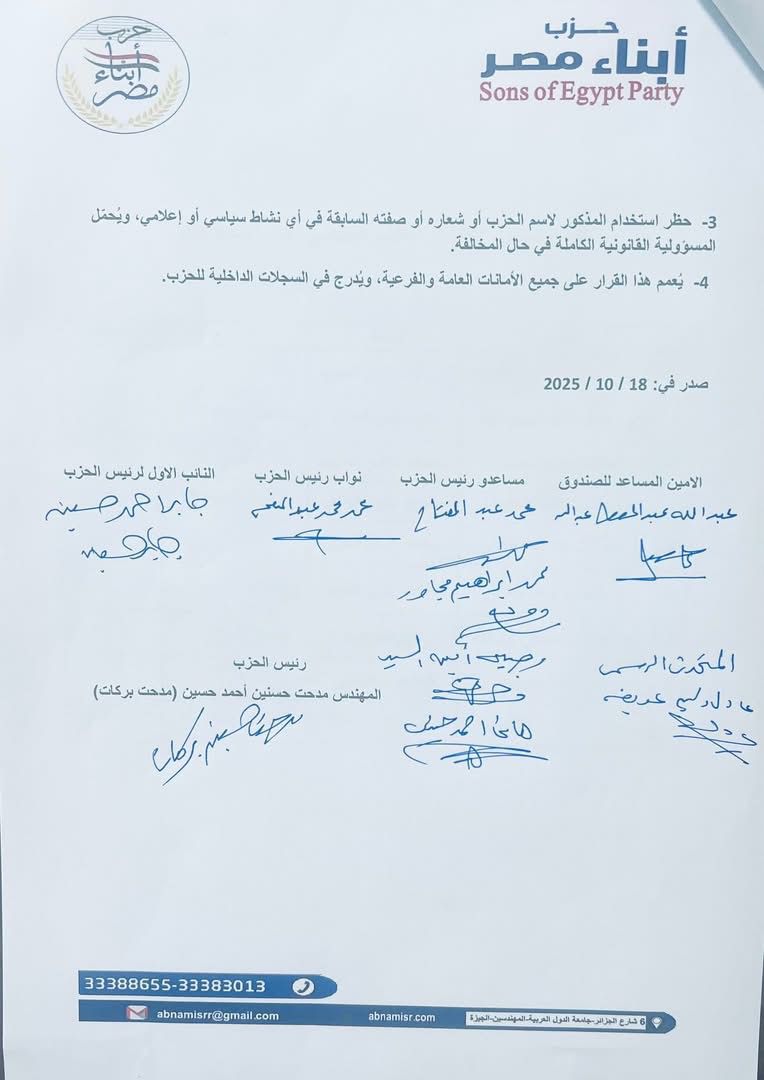 حزب
أبناء مصر
Sons of Egypt Party
حزب
أبناء
مصر
3- حظر استخدام المذكور لاسم الحزب أو شعاره أو صفته السابقة في أي نشاط سياسي أو إعلامي، ويُحمّل
المسؤولية القانونية الكاملة في حال المخالفة.
4- يُعمم هذا القرار على جميع الأمانات العامة والفرعية، ويُدرج في السجلات الداخلية للحزب.
صدر في: 18 / 10 / 2025
الامين المساعد للصندوق
مساعدو رئيس الحزب
نواب رئيس الحزب
النائب الاول لرئيس الحزب
عبد الله
محمد عبد الفتاح
محمد محمد عبد المنعم
جابر احمد حسين
محمد ابراهيم مجاور
المتحدث الرسمى
عادل
السيد
هانى احمد
رئيس الحزب
المهندس مدحت حسنين أحمد حسين (مدحت بركات)
مدحت حسنين بركات
33388655-33383013
abnamisrr@gmail.com
abnamisr.com
6 شارع الجزائر-جامعة الدول العربية-المهندسين-الجيزة